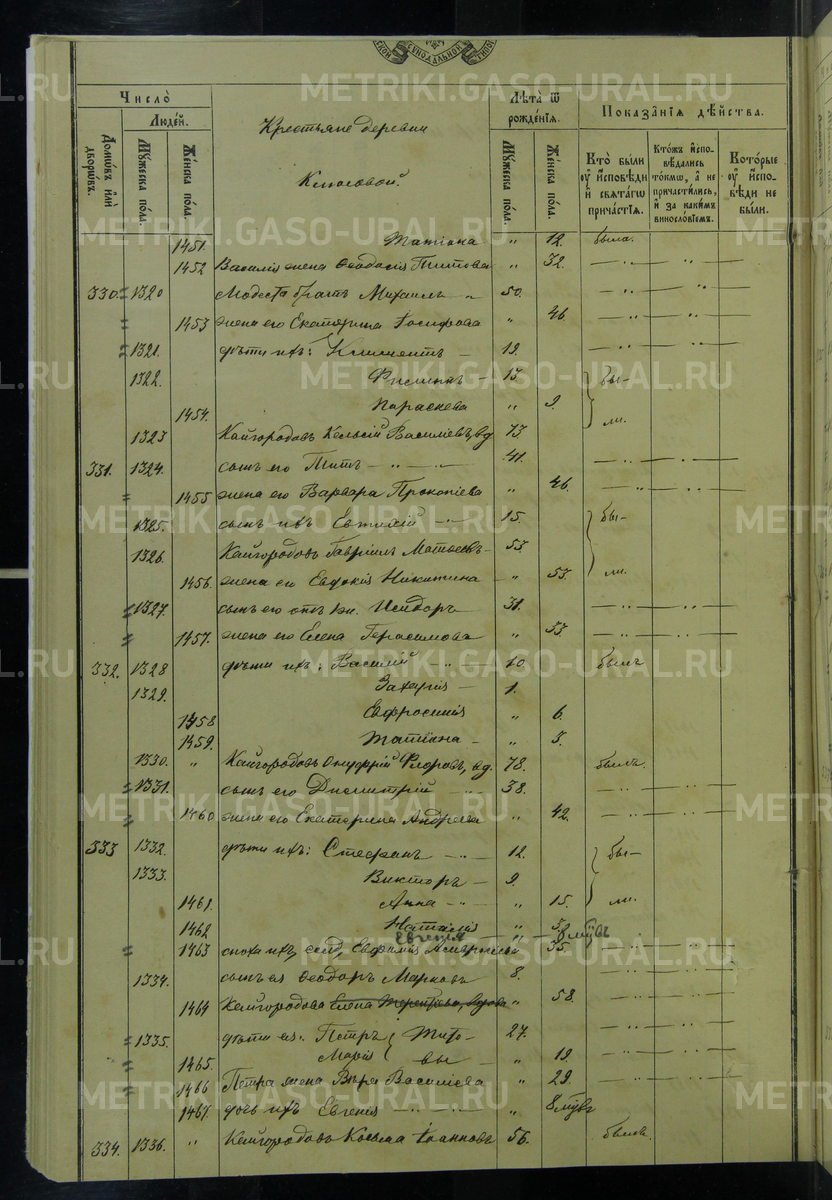 СѴНОДАЛЬНОЙ
METRIKI.GASO-URAL.RU
Число̀
Людей.
Домѡвъ и҆лѝ дворѡвъ.
Мꙋжеска пола.
Женска пола.
Крестьяне деревни
Лѣта ѿ рождєнїѧ.
Мꙋжеска пола.
Женска пола.
Показанїѧ дѣйства.
Кто̀ были ᲂу҆ и҆сповѣди и҆ свѧтагѡ причастїѧ.
Кто́жъ и҆спо­вѣдались то́кмѡ, а҆ не причастились, и҆ за какимъ винословїемъ.
Которые ᲂу҆ и҆спо­вѣди не были.
1451. Татіана " 12. была.
1452 Василія жена Ѳеодосія Титова " 32.
330 1320 Модеста братъ Михаилъ " 50.
1453 жена его Екатерина Іосифова " 46.
1321. дѣти ихъ: Климентъ — 19.
1322. 13. бы-
1454. Параскева " 9. ли.
1323 Кайгородовъ Василіевъ, вд 73
331. 1324. сынъ его Титъ 41.
1455 жена его Варвара Прокопіева " 46.
1325. сынъ ихъ Евтихій 15. бы-
1326. Кайгородовъ Гавріилъ 53.
1456. жена его Евдокія Никитина " 53. ли.
1327. сынъ его Исидоръ 31.
1457. жена его Елена Герасимова " 33
332. 1328 дѣти ихъ: Василій 10. былъ
1329. Захарія — 1.
1458 Евфросинія " 6.
1459. Татіана — " 3.
1330. " Кайгородовъ Онуфрій Флоровъ, вд. 78. былъ.
1331. сынъ его Димитрій 38.
1460 жена его Екатерина Андреева " 42.
333 1332. дѣти ихъ: Стефанъ 12. бы-
1333. Викторъ — 9.
1461. Анна " 15. ли.
1462 Наталія " 5
Евгенія
1463 сноха ихъ, солд. Евфимія " 35
1334. сынъ ея Ѳеодоръ Марковъ 8.
1464 Кайгородова Елена Терентьева, вдова " 58.
1335. дѣти ея: Петръ Тито- 27.
1465. Марія вы " 19.
1466 Петра жена Вѣра Василіева " 29.
1467. дочь ихъ Евгенія "
334. 1336. " Кайгородовъ Косьма Іоанновъ 56. былъ.